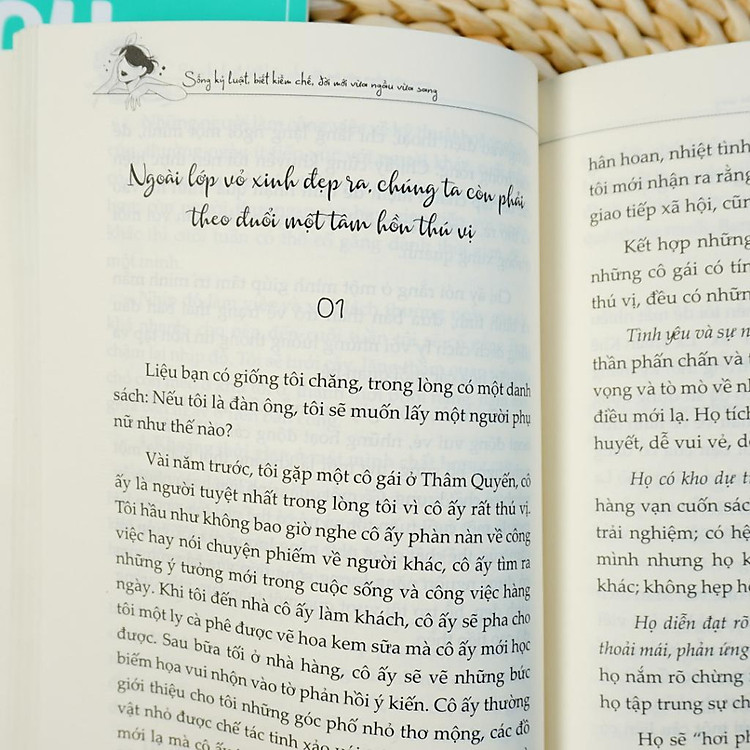 Sống kỷ luật, biết kiềm chế, đời mới vừa ngầu vừa sang
Ngoài lớp vỏ xinh đẹp ra, chúng ta còn phải
theo đuổi một tâm hồn thú vị
01
Liệu bạn có giống tôi chăng, trong lòng có một danh
sách: Nếu tôi là đàn ông, tôi sẽ muốn lấy một người phụ
nữ như thế nào?
Vài năm trước, tôi gặp một cô gái ở Thâm Quyến, cô
ấy là người tuyệt nhất trong lòng tôi vì cô ấy rất thú vị.
Tôi hầu như không bao giờ nghe cô ấy phàn nàn về công
việc hay nói chuyện phiếm về người khác, cô ấy tìm ra
những ý tưởng mới trong cuộc sống và công việc hàng
ngày. Khi tôi đến nhà cô ấy làm khách, cô ấy sẽ pha cho
tôi một ly cà phê được vẽ hoa kem sữa mà cô ấy mới học
được. Sau bữa tối ở nhà hàng, cô ấy sẽ vẽ những bức
biếm họa vui nhộn vào tờ phản hồi ý kiến. Cô ấy thường
giới thiệu cho tôi những góc phố nhỏ thơ mộng, các đồ
vật nhỏ được chế tác tinh xảo với
mới lạ mà cô ấy
hân hoan, nhiệt tình
tôi mới nhận ra rằng
giao tiếp xã hội, cũn
Kết hợp những
những cô gái có tín
thú vị, đều có nhữn
Tình yêu và sự n
thần phấn chấn và t
vọng và tò mò về nh
điều mới lạ. Họ tích
huyết, dễ vui vẻ, d
Họ có kho dự t
hàng vạn cuốn sác
trải nghiệm; có hệ
mình nhưng họ k
khác; không hẹp h
Họ diễn đạt rõ
thoải mái, phản ứng
họ nắm rõ chừng
họ tập trung sự ch
Họ sẽ "hơi ph